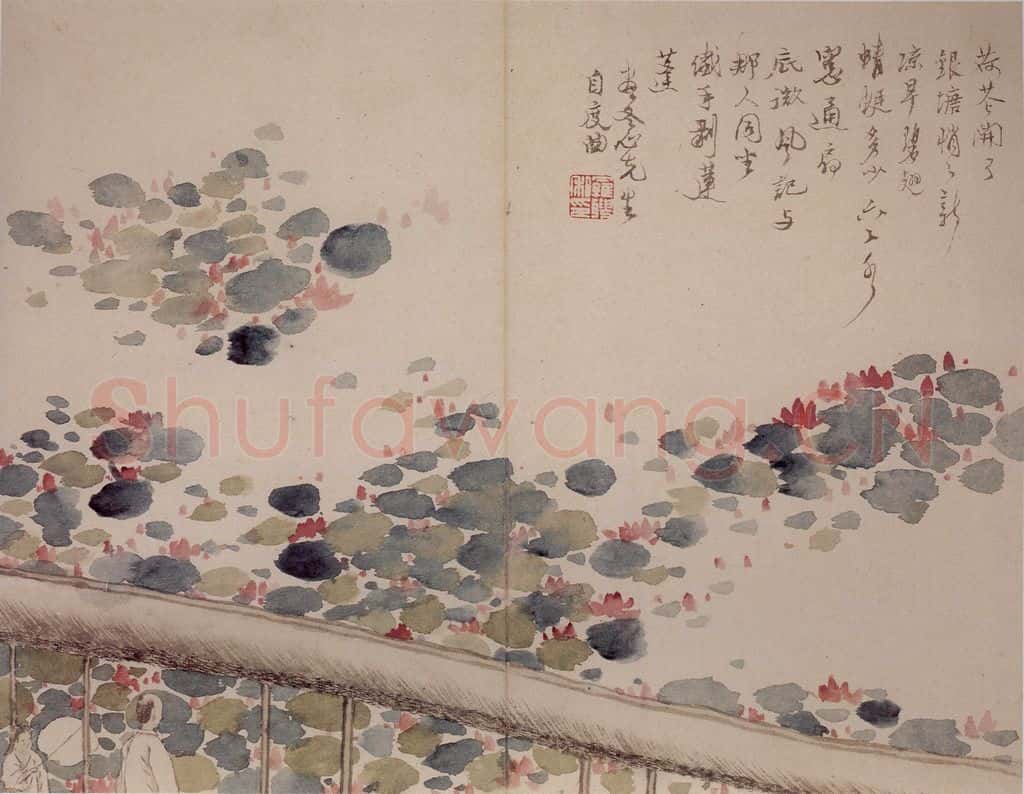 荷花開了
銀塘悄々新
涼早碧翅
蜻蜓多少六々水
窻通扇
底微風記与
那人同坐
纖手剝蓮
蓬
畫冬心先生
自度曲
Shufawang.CN